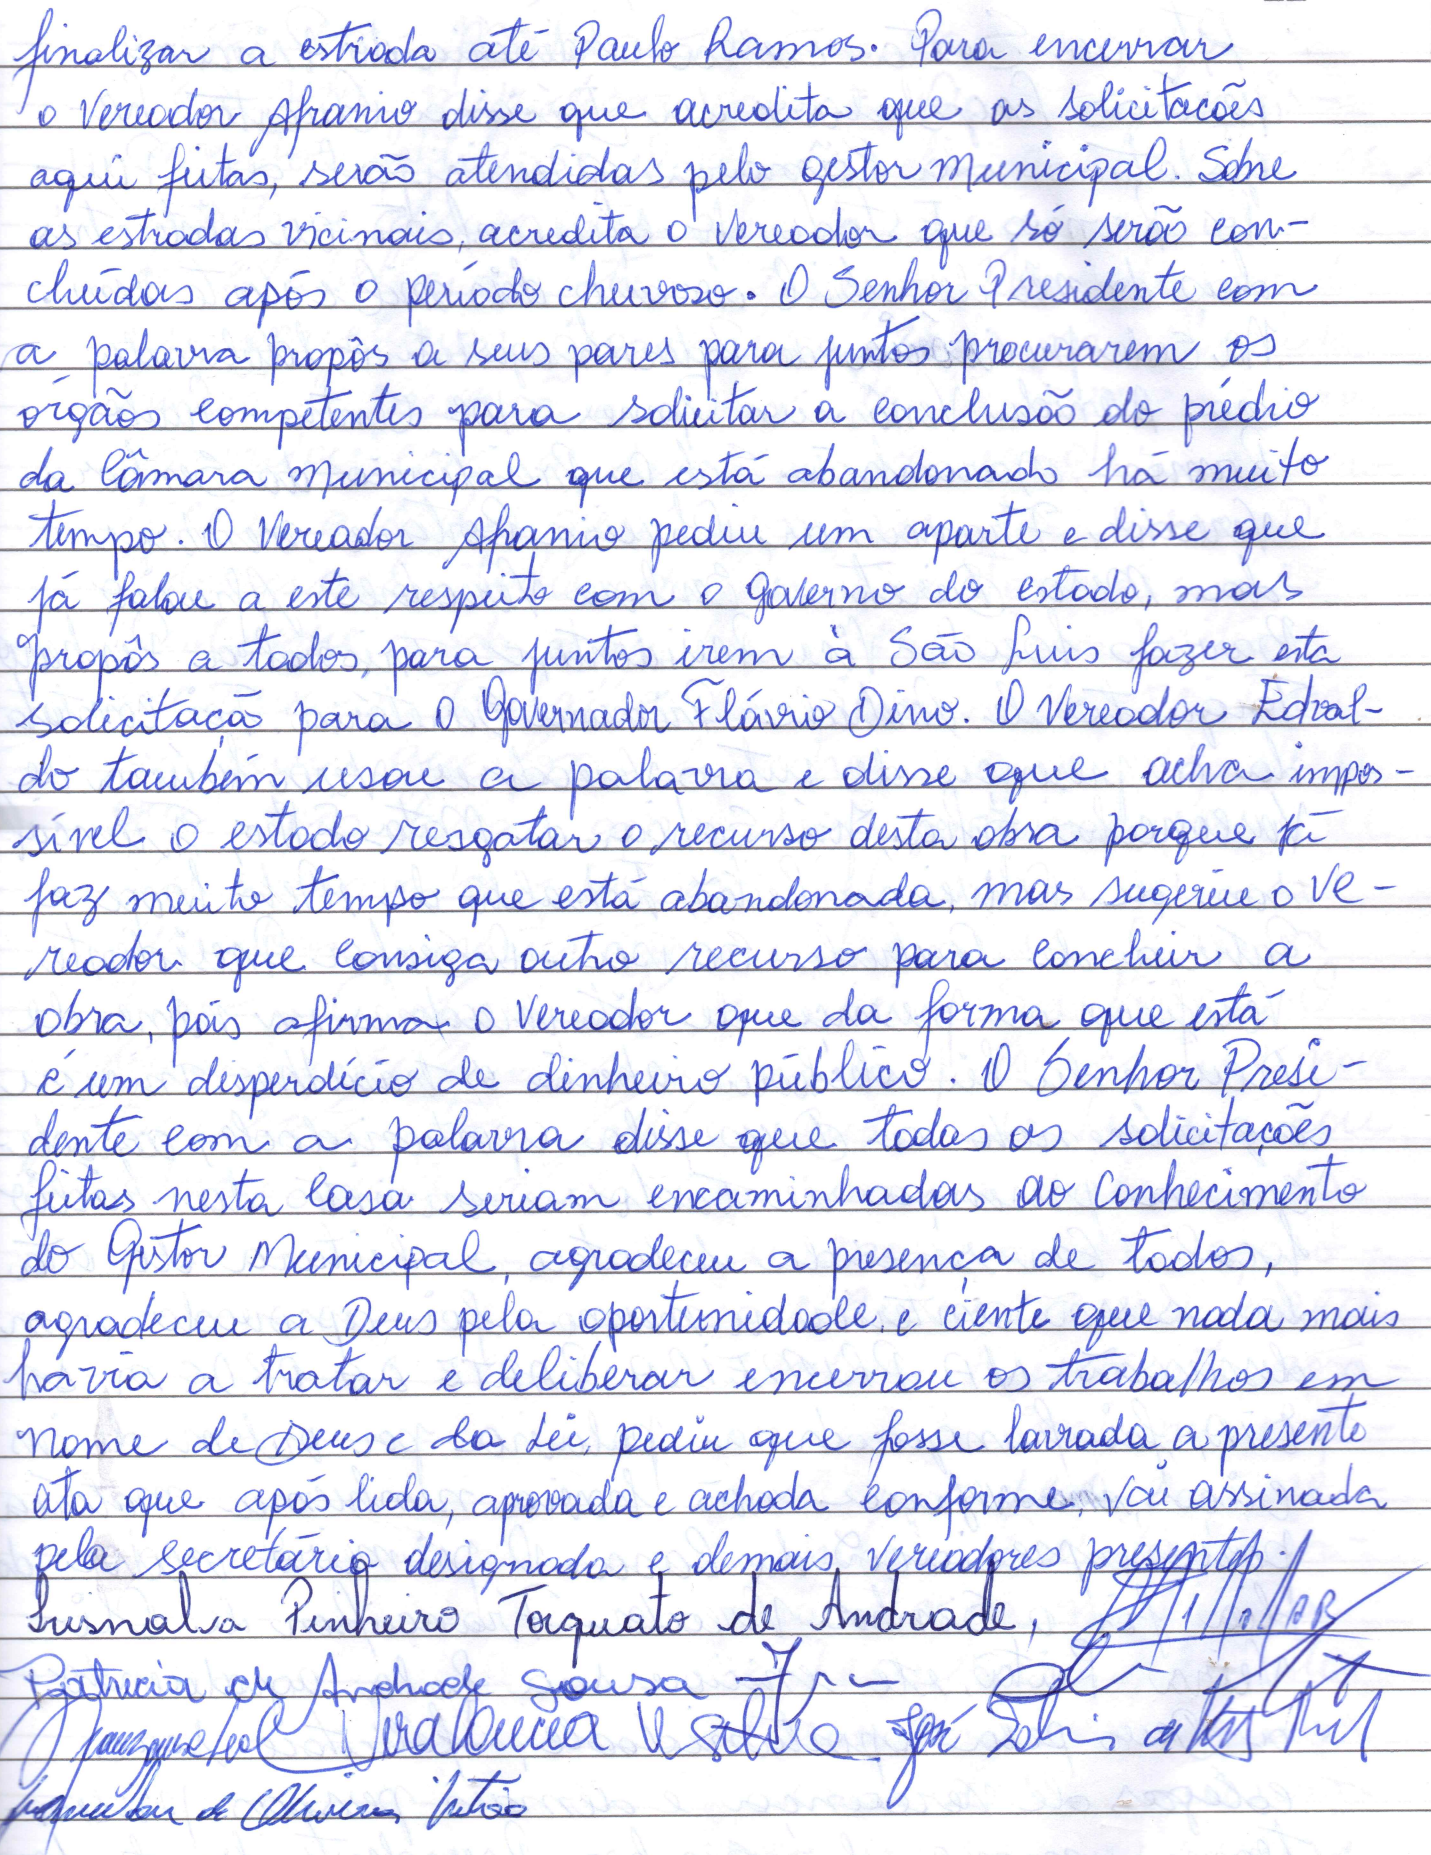 finalizar a estrada até Paulo Ramos. Para encerrar
o Vereador Afranio disse que acredita que as solicitacões
aqui feitas, serão atendidas pelo gestor Municipal. Sobre
as estradas vicinais, acredita o Vereador que só serão con-
cluídas após o período chuvoso. O Senhor Presidente com
a palavra propôs a seus pares para juntos procurarem os
orgãos competentes para solicitar a conclusão do prédio
da Câmara Municipal que está abandonado há muito
tempo. O Vereador Afranio pediu um aparte e disse que
já falou a este respeito com o Governo do estado, mas
propôs a todos, para juntos irem à São Luis fazer esta
solicitaçã para o Governador Flávio Dino. O Vereador Edval-
do também usou a palavra e disse que acha impos-
sível o estado resgatar o recurso desta obra porque já
faz muito tempo que está abandonada, mas sugeriu o Ve-
reador que consiga outro recurso para concluir a
obra, pois afirma o Vereador que da forma que está
é um desperdício de dinheiro público. O Senhor Presi-
dente com a palavra disse que todas as solicitações
feitas nesta Casa seriam encaminhadas ao Conhecimento
do Gestor Municipal, agradeceu a presença de todos,
agradeceu a Deus pela oportunidade, e ciente que nada mais
havia a tratar e deliberar encerrou os trabalhos em
nome de Deus e da Lei, pediu que fosse lavrada a presente
ata que após lida, aprovada e achada conforme, vai assinada
pela secretária designada e demais vereadores presentes.
Lusnalva Pinheiro Torquato de Andrade,
Patricia de Andrade Sousa
Vera Lucia V Silva José
de Oliveira